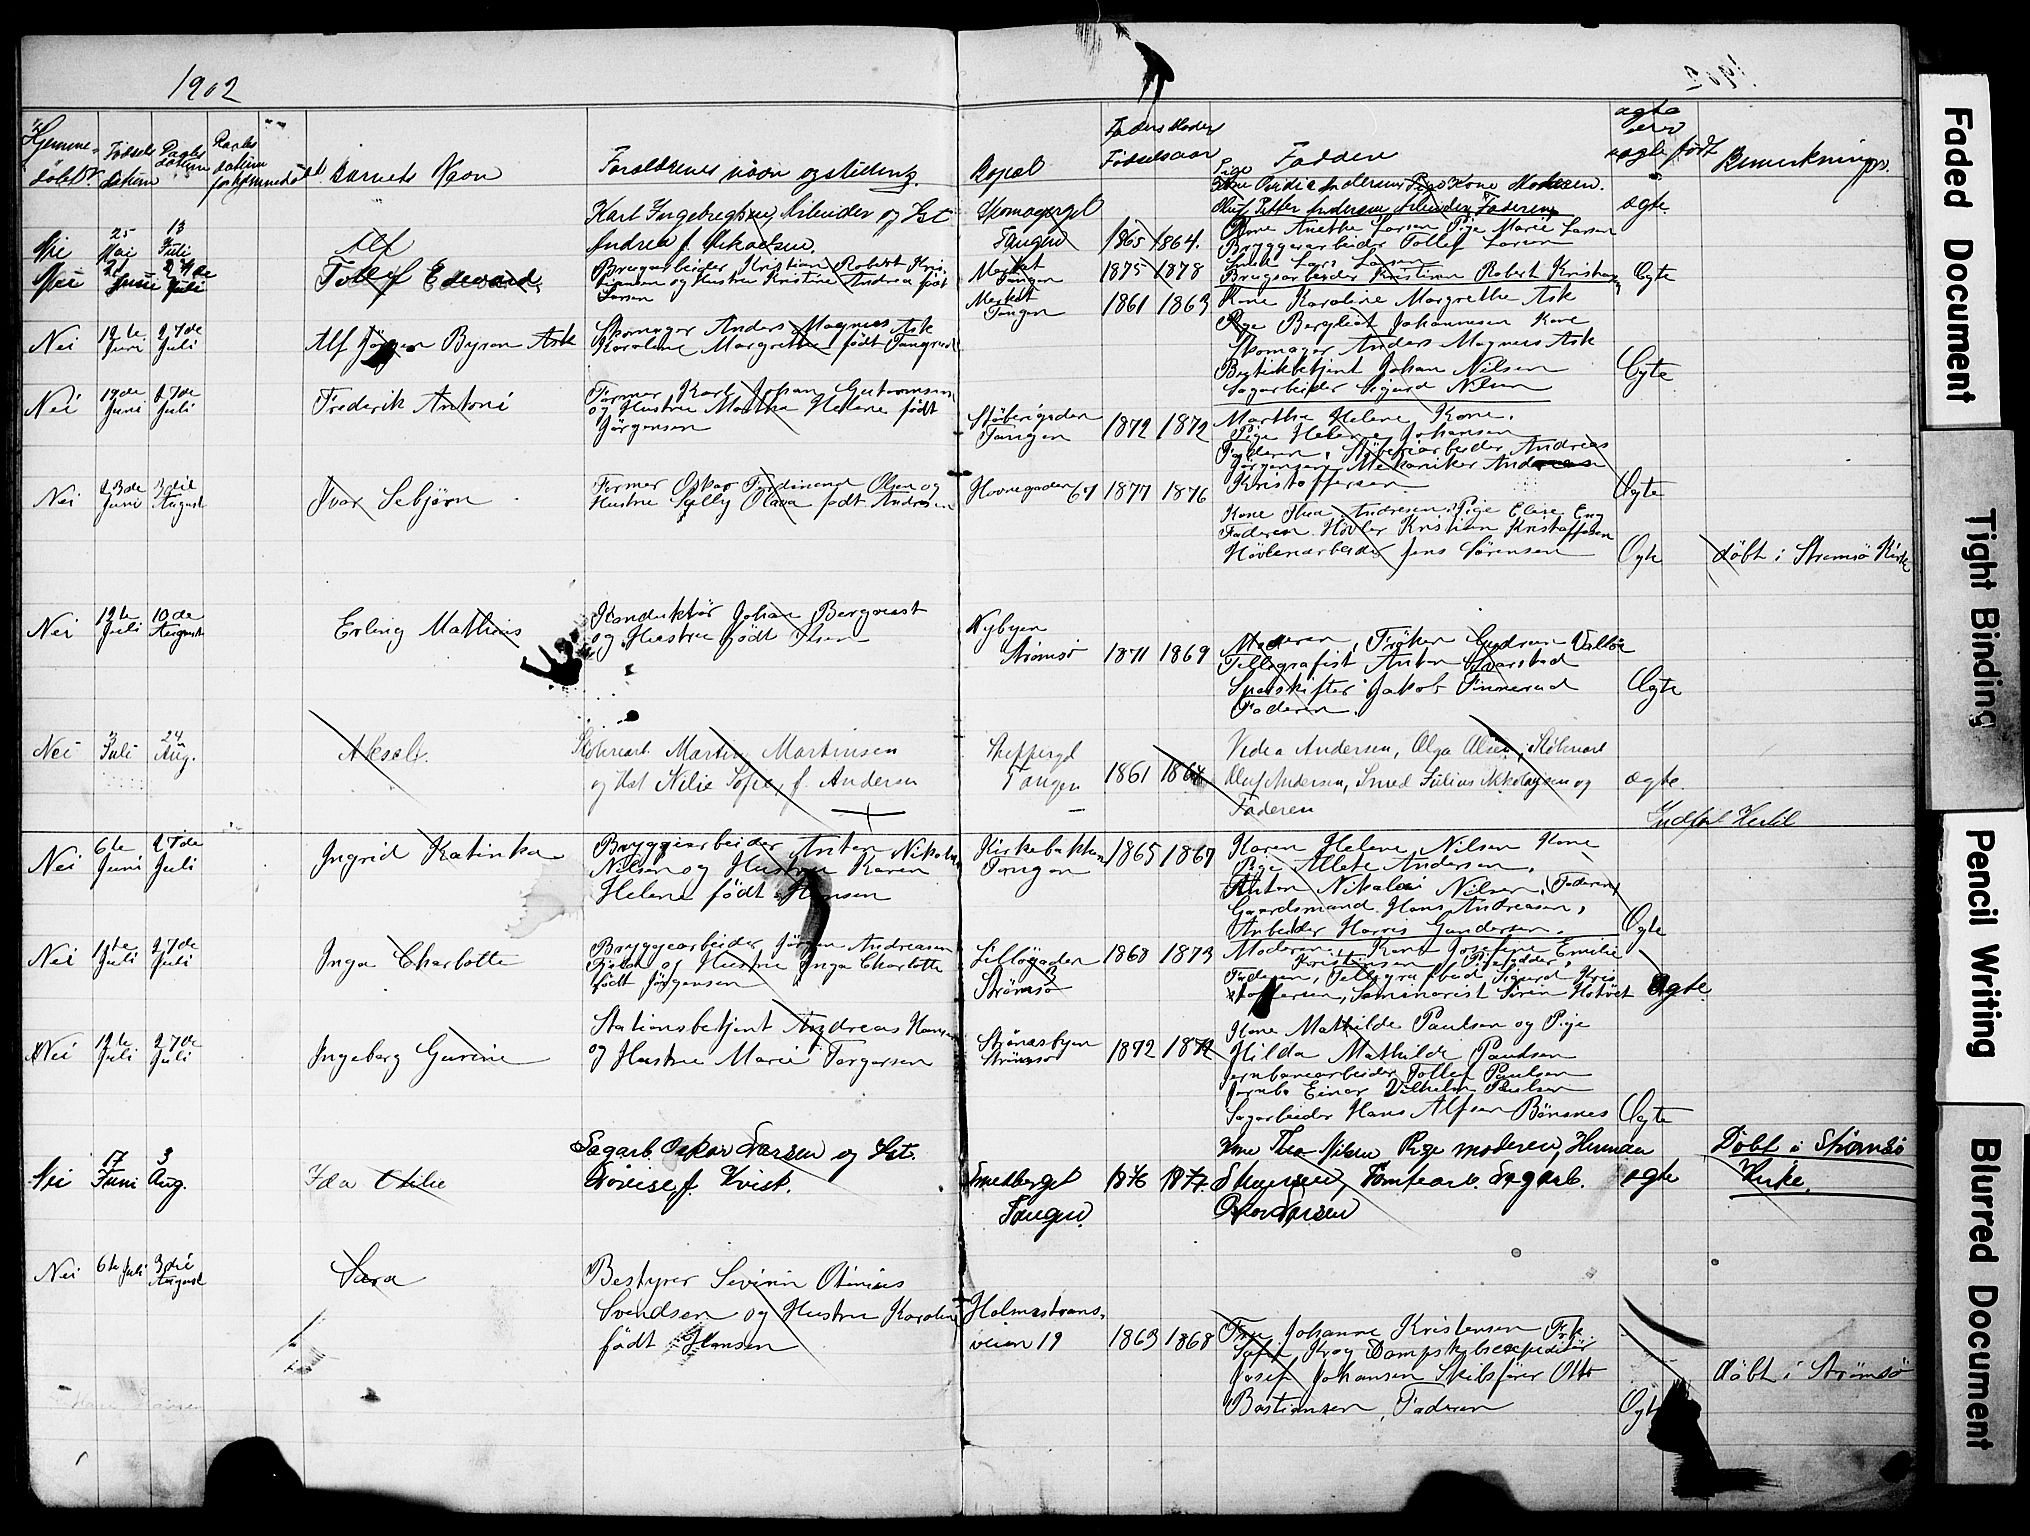 1902
Hjemme-
døbt?
Fødsels
datum
Daabs
datum
Daabs
datum
for hjemmedøbt
Barnets Navn
Forældrenes navn og stilling.
Bopæl
Faders Moders
Fødselsaar
Faddere
ægte
eller
uægte født
Bemerkninger.
Nei
25 Mai
13 Juli
Alf
Karl Ingebregtsen, arbeider og Hst
Andrea f. Mikaelsen
Skomagergt
Tangen
1865 1864.
Oluf Petter Andersen Faderen
ægte
Nei
2d Juni
27de Juli
Tollef Edevard
Brugsarbeider Kristian Robert Kris-
tiansen og Hustru Kristine Andrea født
Larsen
Merket
Tangen
1875 1878
Kone Anethe Larsen Pige Marie Larsen
Bryggesarbeider Tollef Larsen
Smed Lars Larsen
Brugsarbeider Kristian Robert Kristians
Ægte
Nei
12te Juni
27de Juli
Alf Jörgen Byron Ask
Skomager Anders Magnus Ask
Karoline Margrethe født Tangrud
Merket
Tangen
1861 1863
Kone Karoline Margrethe Ask
Pige Bergliot Johannesen Kone
Skomager Anders Magnus Ask
Butikbetjent Johan Nilsen
Sagarbeider Sigurd Nilsen
Ægte
Nei
19de Juni
27de Juli
Frederik Antoni
Former Karl Johan Gustavnsen
og Hustru Martha Helene født
Jörgensen
Støberigaden
Tangen
1872 1872
Martha Helene Kone.
Pige Helene Johansen
Faderen, Støberiarbeider Andreas
Jörgensen Mekaniker Andreasen
Kristoffersen
Ægte
Nei
23de Juni
3die August
Ivar Sebjörn
Former Oskar Ferdinand Olsen og
Hustru Selly Olava født Andresen
Havnegaden 67
1877 1876
Kone Thea Andresen. Pige Elise Eng
Faderen Høvler Kristian Kristoffersen
Høvleriarbeider Jens Sörensen
Ægte
döbt i Strømsö Kirke
Nei
12te Juli
10de August
Erling Mathias
Konduktör Johan Bergqvist
og Hustru født Olsen
Nybyen
Strømsö
1871 1869
Moderen, Fröken Gudrun Valløe
Tellegrafist Anton Svarstad
Sporskifter Jakob Finnerud
Faderen.
Ægte
Nei
3 Juli
24 Aug.
Aksel.
Støberiarb. Martin Martinsen
og Hst Nilie Sofie, f. Andersen
Skippergt
Tangen
1861 1864
Vedea Andersen, Olga Olsen, Støberiarb
Oluf Andersen, Smed Julius Nikolaysen og
Faderen
ægte.
Nei
6te Juni
27de Juli
Ingrid Katinka
Bryggiarbeider Anton Nikolai
Nilsen og Hustru Karen
Helene født Hansen
Kirkebakken
Tangen
1865 1867
Karen Helene Nilsen Kone
Pige Alette Andersen,
Anton Nikolai Nilsen, (Faderen)
Gaardsmand Hans Andreasen,
Arbeider Harris Gundersen.
Ægte
Nei
11te Juli
27de Juli
Inga Charlotte
Bryggearbeider, Jörgen Andreasen
Fjeld og Hustru Inga Charlotte
født Jörgensen
Lilløgaden
Strømsö
1868 1873
Moderen, Kone Josefine Emilie
Kristensen,
Faderen, Tellegrafbud Sigurd Kris
stoffersen, Seminarist Sörin Hotvet
Ægte
Nei
12te Juli
27de Juli
Ingeborg Gurine
Stationsbetjent Andreas Hansen
og Hustru Marie Torgersen
Strømsbyen
Strømsö
1872 1872
Kone Mathilde Paulsen og Pige
Hilda Mathilde Paulsen
Jernbanearbeider Tollef Paulsen
Jernb. Einar Vilhelm Paulsen
Sagarbeider Hans Alfsen Bönsnes
Ægte
Nei
17 Juni
3 Aug.
Ida Otilie
Sagarb. Oskar Larsen og Hst.
Lovise f. Kvist.
Smedberget
Tangen
1876 1877.
Kone Thea Nilsen Pige moderen, Herman
Tomtearb. Sagarb.
Oskar Larsen
ægte
Döbt i Strømsö
Kirke.
Nei
6te Juli
3die August
Sara
Bestyrer Sevrin Otinius
Svendsen og Hustru Karoline
født Hansen
Holmestrans-
veien 19
1863 1868
Fru Johanne Kristensen Frk.
Sofie Krog Dampskibsexpeditör
Josef Johansen Skibsförer Otto
Bastiansen, Faderen
Ægte
döbt i Strømsö
Faded Document
Tight Binding
Pencil Writing
Blurred Document